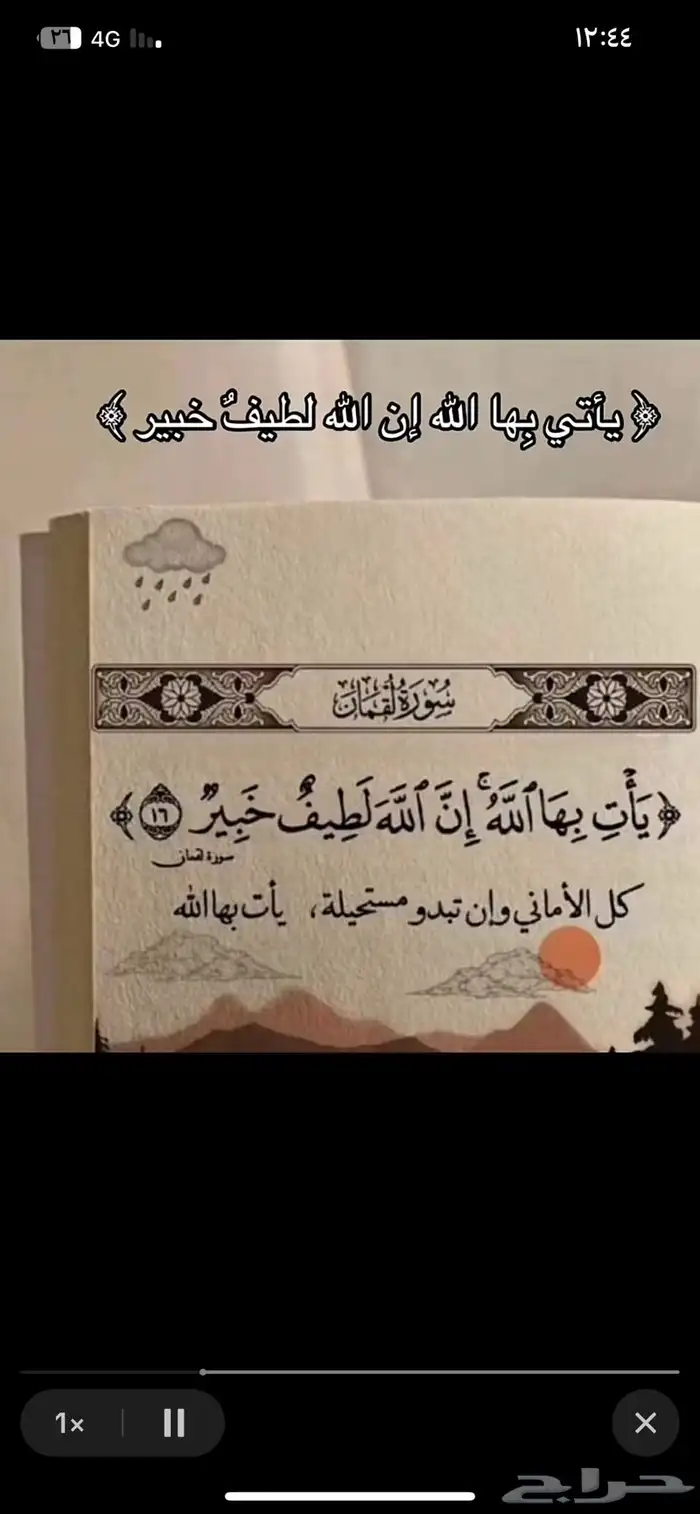 ١٢:٤٤
4G ٢٦
﴿ يأتي بِها الله إِن الله لطيفٌ خبير ﴾
سُورَةُ لُقْمَان
﴿ يَأْتِ بِهَا ٱللَّهُ ۚ إِنَّ ٱللَّهَ لَطِيفٌ خَبِيرٌ ١٦ ﴾
سورة لقمان
كل الأماني وإن تبدو مستحيلة، يأت بها الله
1×
حراج